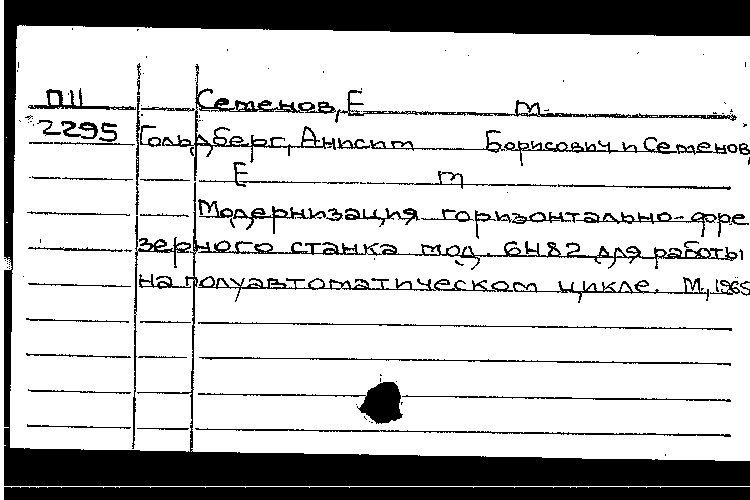 П11 Семенов, Е т
2295 Гольдберг, Анисим Борисович и Семенов,
Е т
Модернизация горизонтально-фре
зерного станка мод. 6Н82 для работы
на полуавтоматическом цикле. М., 1965